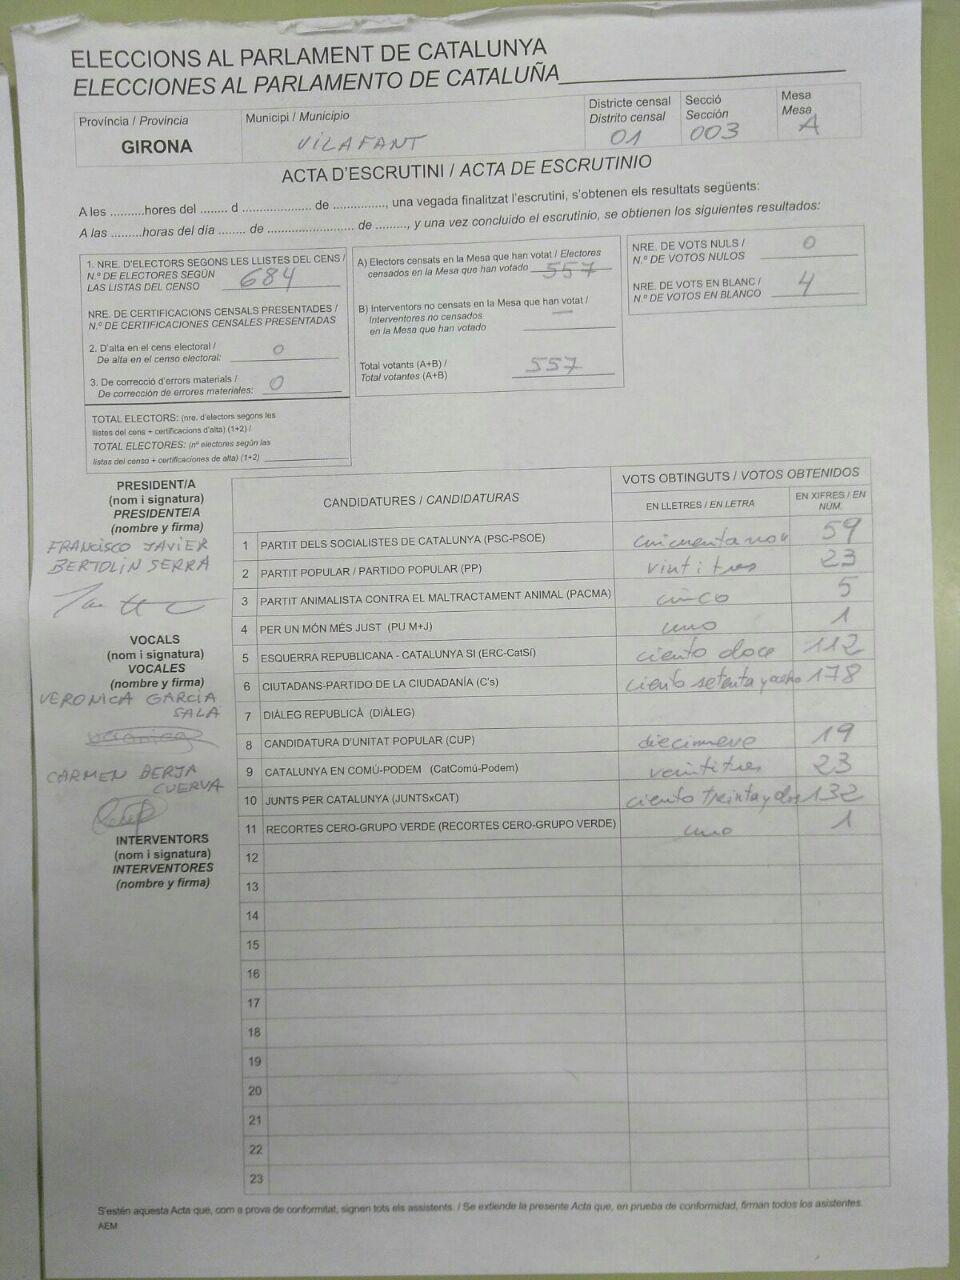 ELECCIONS AL PARLAMENT DE CATALUNYA
ELECCIONES AL PARLAMENTO DE CATALUÑA
Província / Provincia
GIRONA
Municipi / Municipio
VILAFANT
Districte censal
Distrito censal
01
Secció
Sección
003
Mesa
Mesa
A
ACTA D'ESCRUTINI / ACTA DE ESCRUTINIO
A les ..........hores del ........ d .................... de ..............., una vegada finalitzat l'escrutini, s'obtenen els resultats següents:
A las .........horas del día ....... de ......................... de ........, y una vez concluido el escrutinio, se obtienen los siguientes resultados:
1. NRE. D'ELECTORS SEGONS LES LLISTES DEL CENS /
N.º DE ELECTORES SEGÚN
LAS LISTAS DEL CENSO 684
NRE. DE CERTIFICACIONS CENSALS PRESENTADES /
N.º DE CERTIFICACIONES CENSALES PRESENTADAS
2. D'alta en el cens electoral /
De alta en el censo electoral: 0
3. De correcció d'errors materials /
De corrección de errores materiales: 0
TOTAL ELECTORS: (nre. d'electors segons les
llistes del cens + certificacions d'alta) (1+2) /
TOTAL ELECTORES: (nº electores según las
listas del censo + certificaciones de alta) (1+2)
A) Electors censats en la Mesa que han votat / Electores
censados en la Mesa que han votado 557
B) Interventors no censats en la Mesa que han votat /
Interventores no censados
en la Mesa que han votado —
Total votants (A+B) /
Total votantes (A+B) 557
NRE. DE VOTS NULS /
N.º DE VOTOS NULOS 0
NRE. DE VOTS EN BLANC /
N.º DE VOTOS EN BLANCO 4
PRESIDENT/A
(nom i signatura)
PRESIDENTE/A
(nombre y firma)
FRANCISCO JAVIER
BERTOLIN SERRA
VOCALS
(nom i signatura)
VOCALES
(nombre y firma)
VERONICA GARCIA
SALA
CARMEN BERJA
CUERVA
INTERVENTORS
(nom i signatura)
INTERVENTORES
(nombre y firma)
CANDIDATURES / CANDIDATURAS
VOTS OBTINGUTS / VOTOS OBTENIDOS
EN LLETRES / EN LETRA
EN XIFRES / EN
NUM.
1 PARTIT DELS SOCIALISTES DE CATALUNYA (PSC-PSOE) 59
2 PARTIT POPULAR / PARTIDO POPULAR (PP) vintitres 23
3 PARTIT ANIMALISTA CONTRA EL MALTRACTAMENT ANIMAL (PACMA) cinco 5
4 PER UN MÓN MÉS JUST (PU M+J) uno 1
5 ESQUERRA REPUBLICANA - CATALUNYA SÍ (ERC-CatSí) ciento doce 112
6 CIUTADANS-PARTIDO DE LA CIUDADANÍA (C's) ciento setenta y ocho 178
7 DIÀLEG REPUBLICÀ (DIÀLEG)
8 CANDIDATURA D'UNITAT POPULAR (CUP) diecinueve 19
9 CATALUNYA EN COMÚ-PODEM (CatComú-Podem) veintitres 23
10 JUNTS PER CATALUNYA (JUNTSxCAT) ciento treinta y dos 132
11 RECORTES CERO-GRUPO VERDE (RECORTES CERO-GRUPO VERDE) uno 1
12
13
14
15
16
17
18
19
20
21
22
23
S'estén aquesta Acta que, com a prova de conformitat, signen tots els assistents. / Se extiende la presente Acta que, en prueba de conformidad, firman todos los asistentes.
AEM